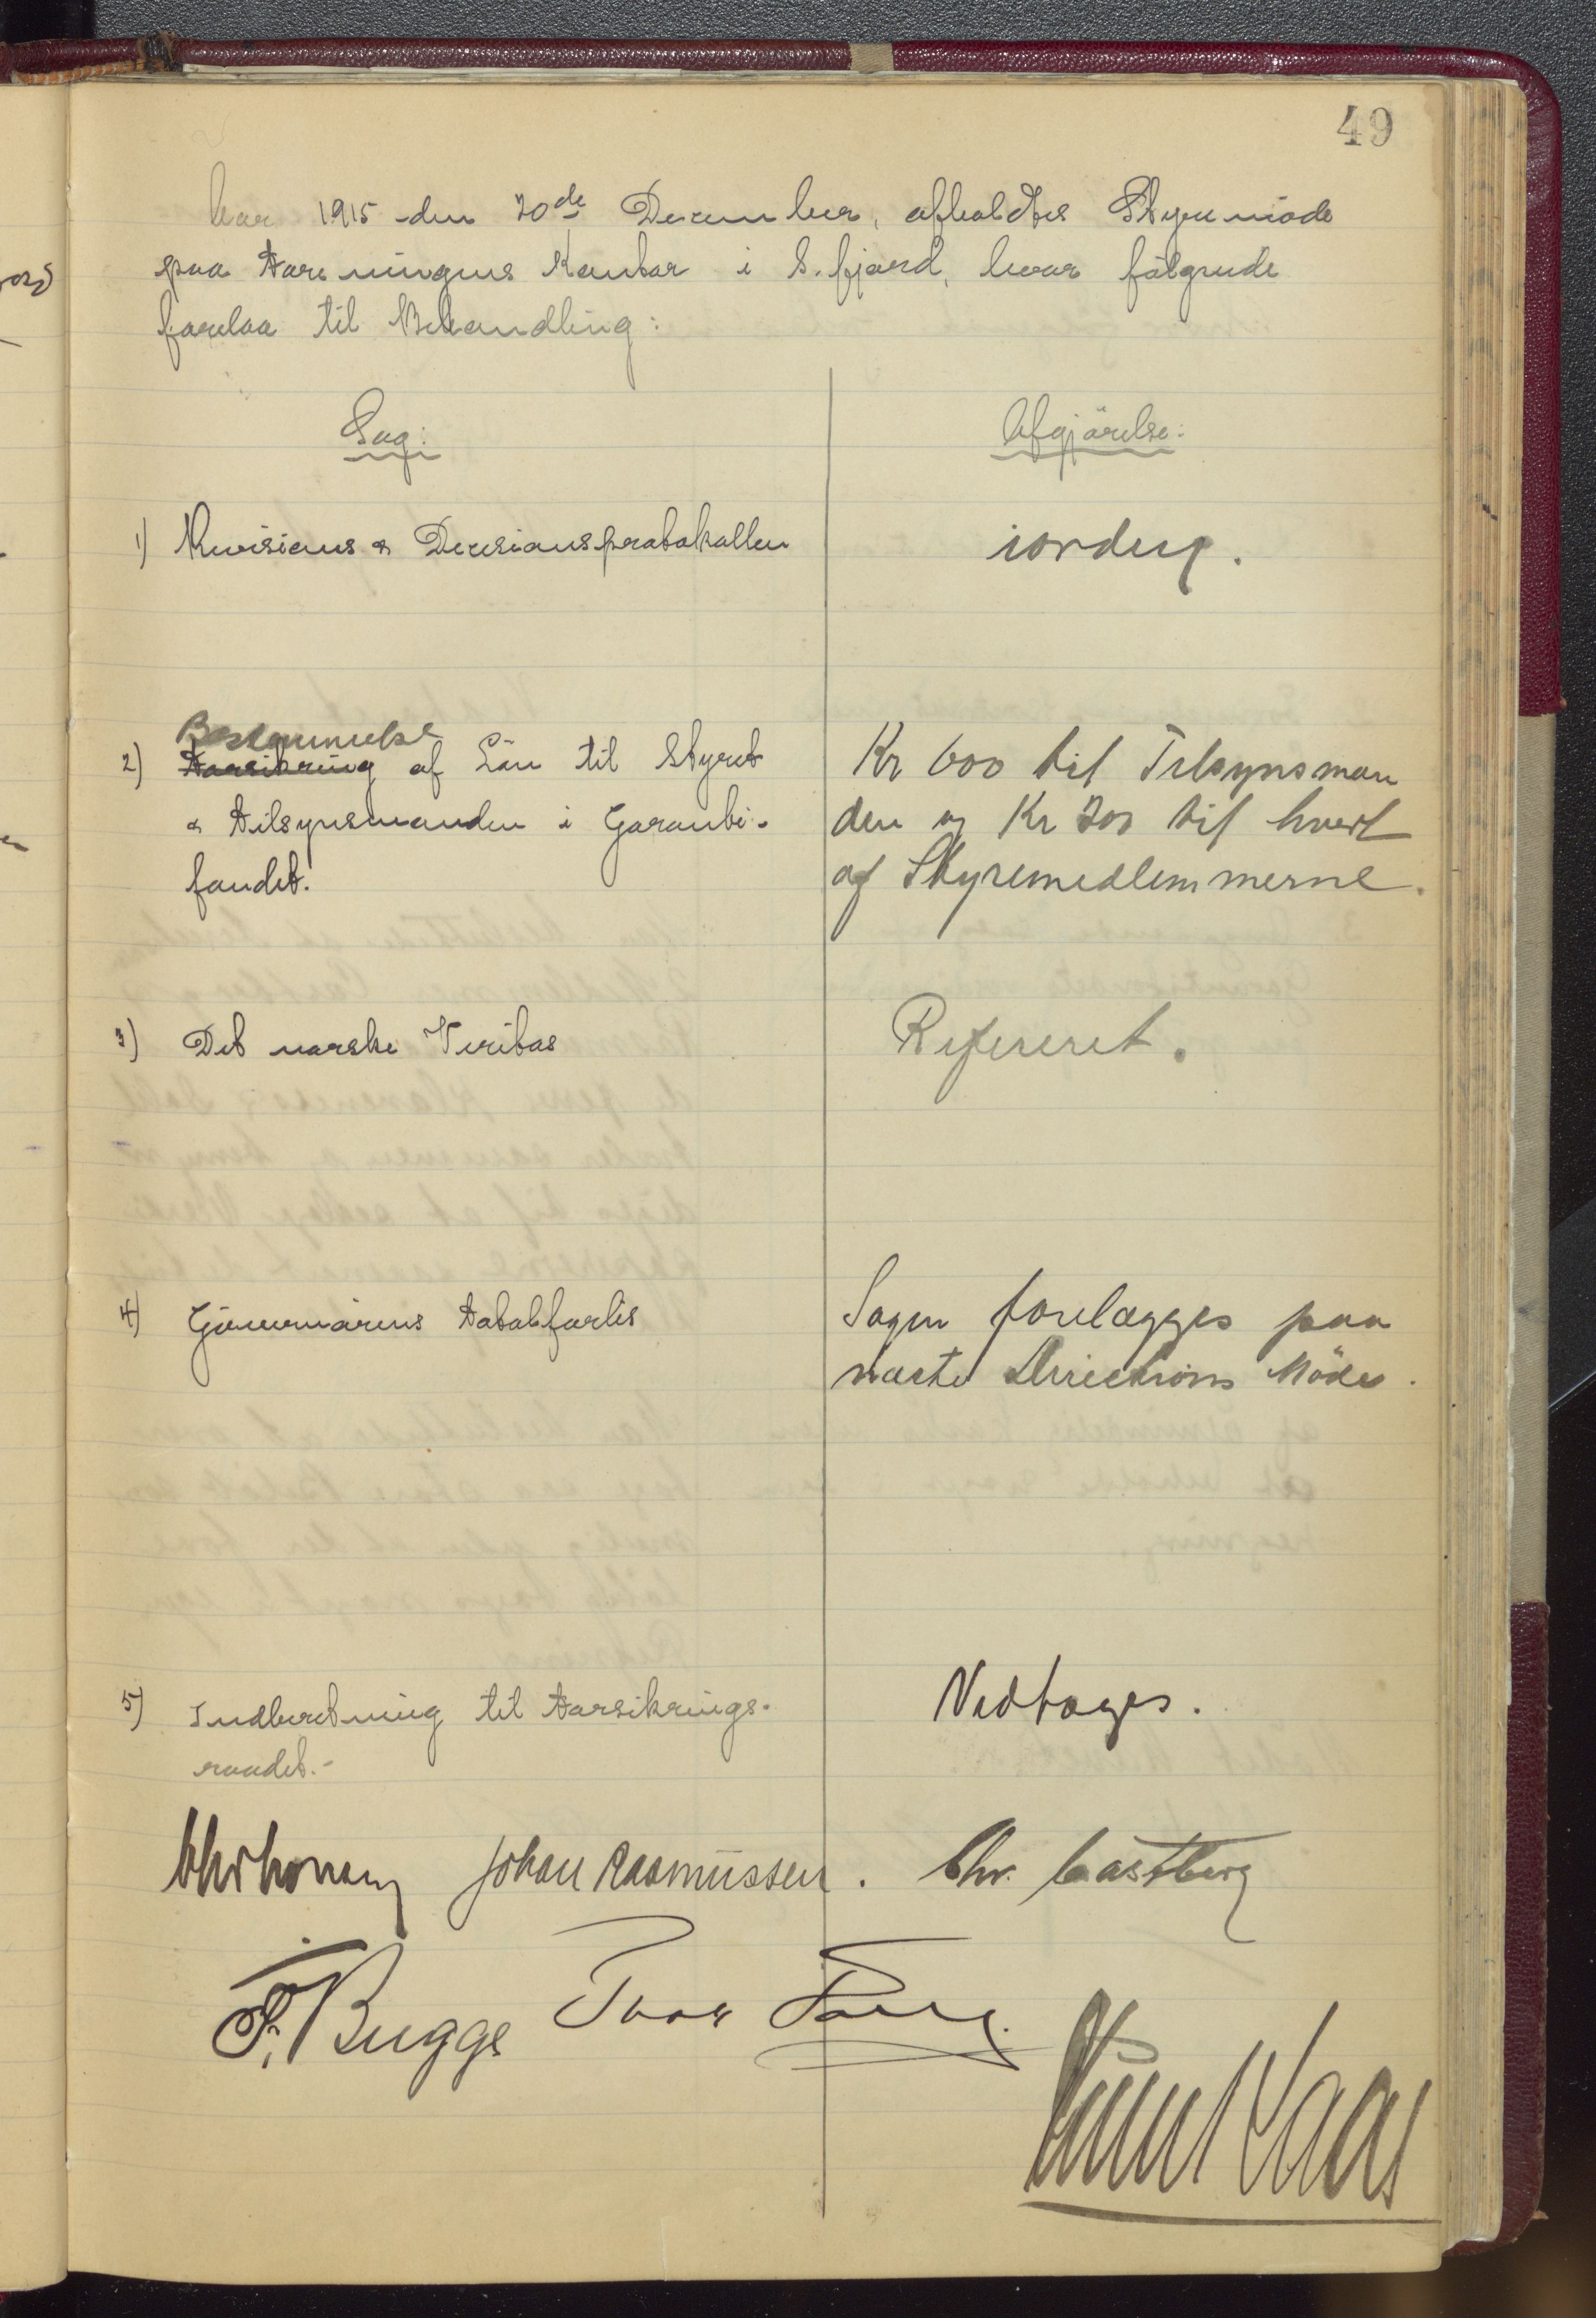 49
Aar 1915 den 20de December, afholdtes Styremöde
paa Foreningens Kontor i S.fjord, hvor fölgende
forelaa til Behandling:
Sag:
Afgjörelse:
1) Revisions & Decisionsprotokollen
iorden.
2) Bestemmelse
Forsikring af Lön til Styret
& Tilsynsmanden i Garanti-
fondet.
Kr 600 til Tilsynsman
den og Kr 200 til hvert
af Styremedlemmerne.
3) Det norske Veritas
Refereret.
4) Gouvernörens Totalforlis
Sagen forelægges paa
næste Directions Möde.
5) Indberetning til Forsikrings-
raadet.-
Vedtages.
Johan Rasmussen. Chr. Castberg
F. Bugge Thor